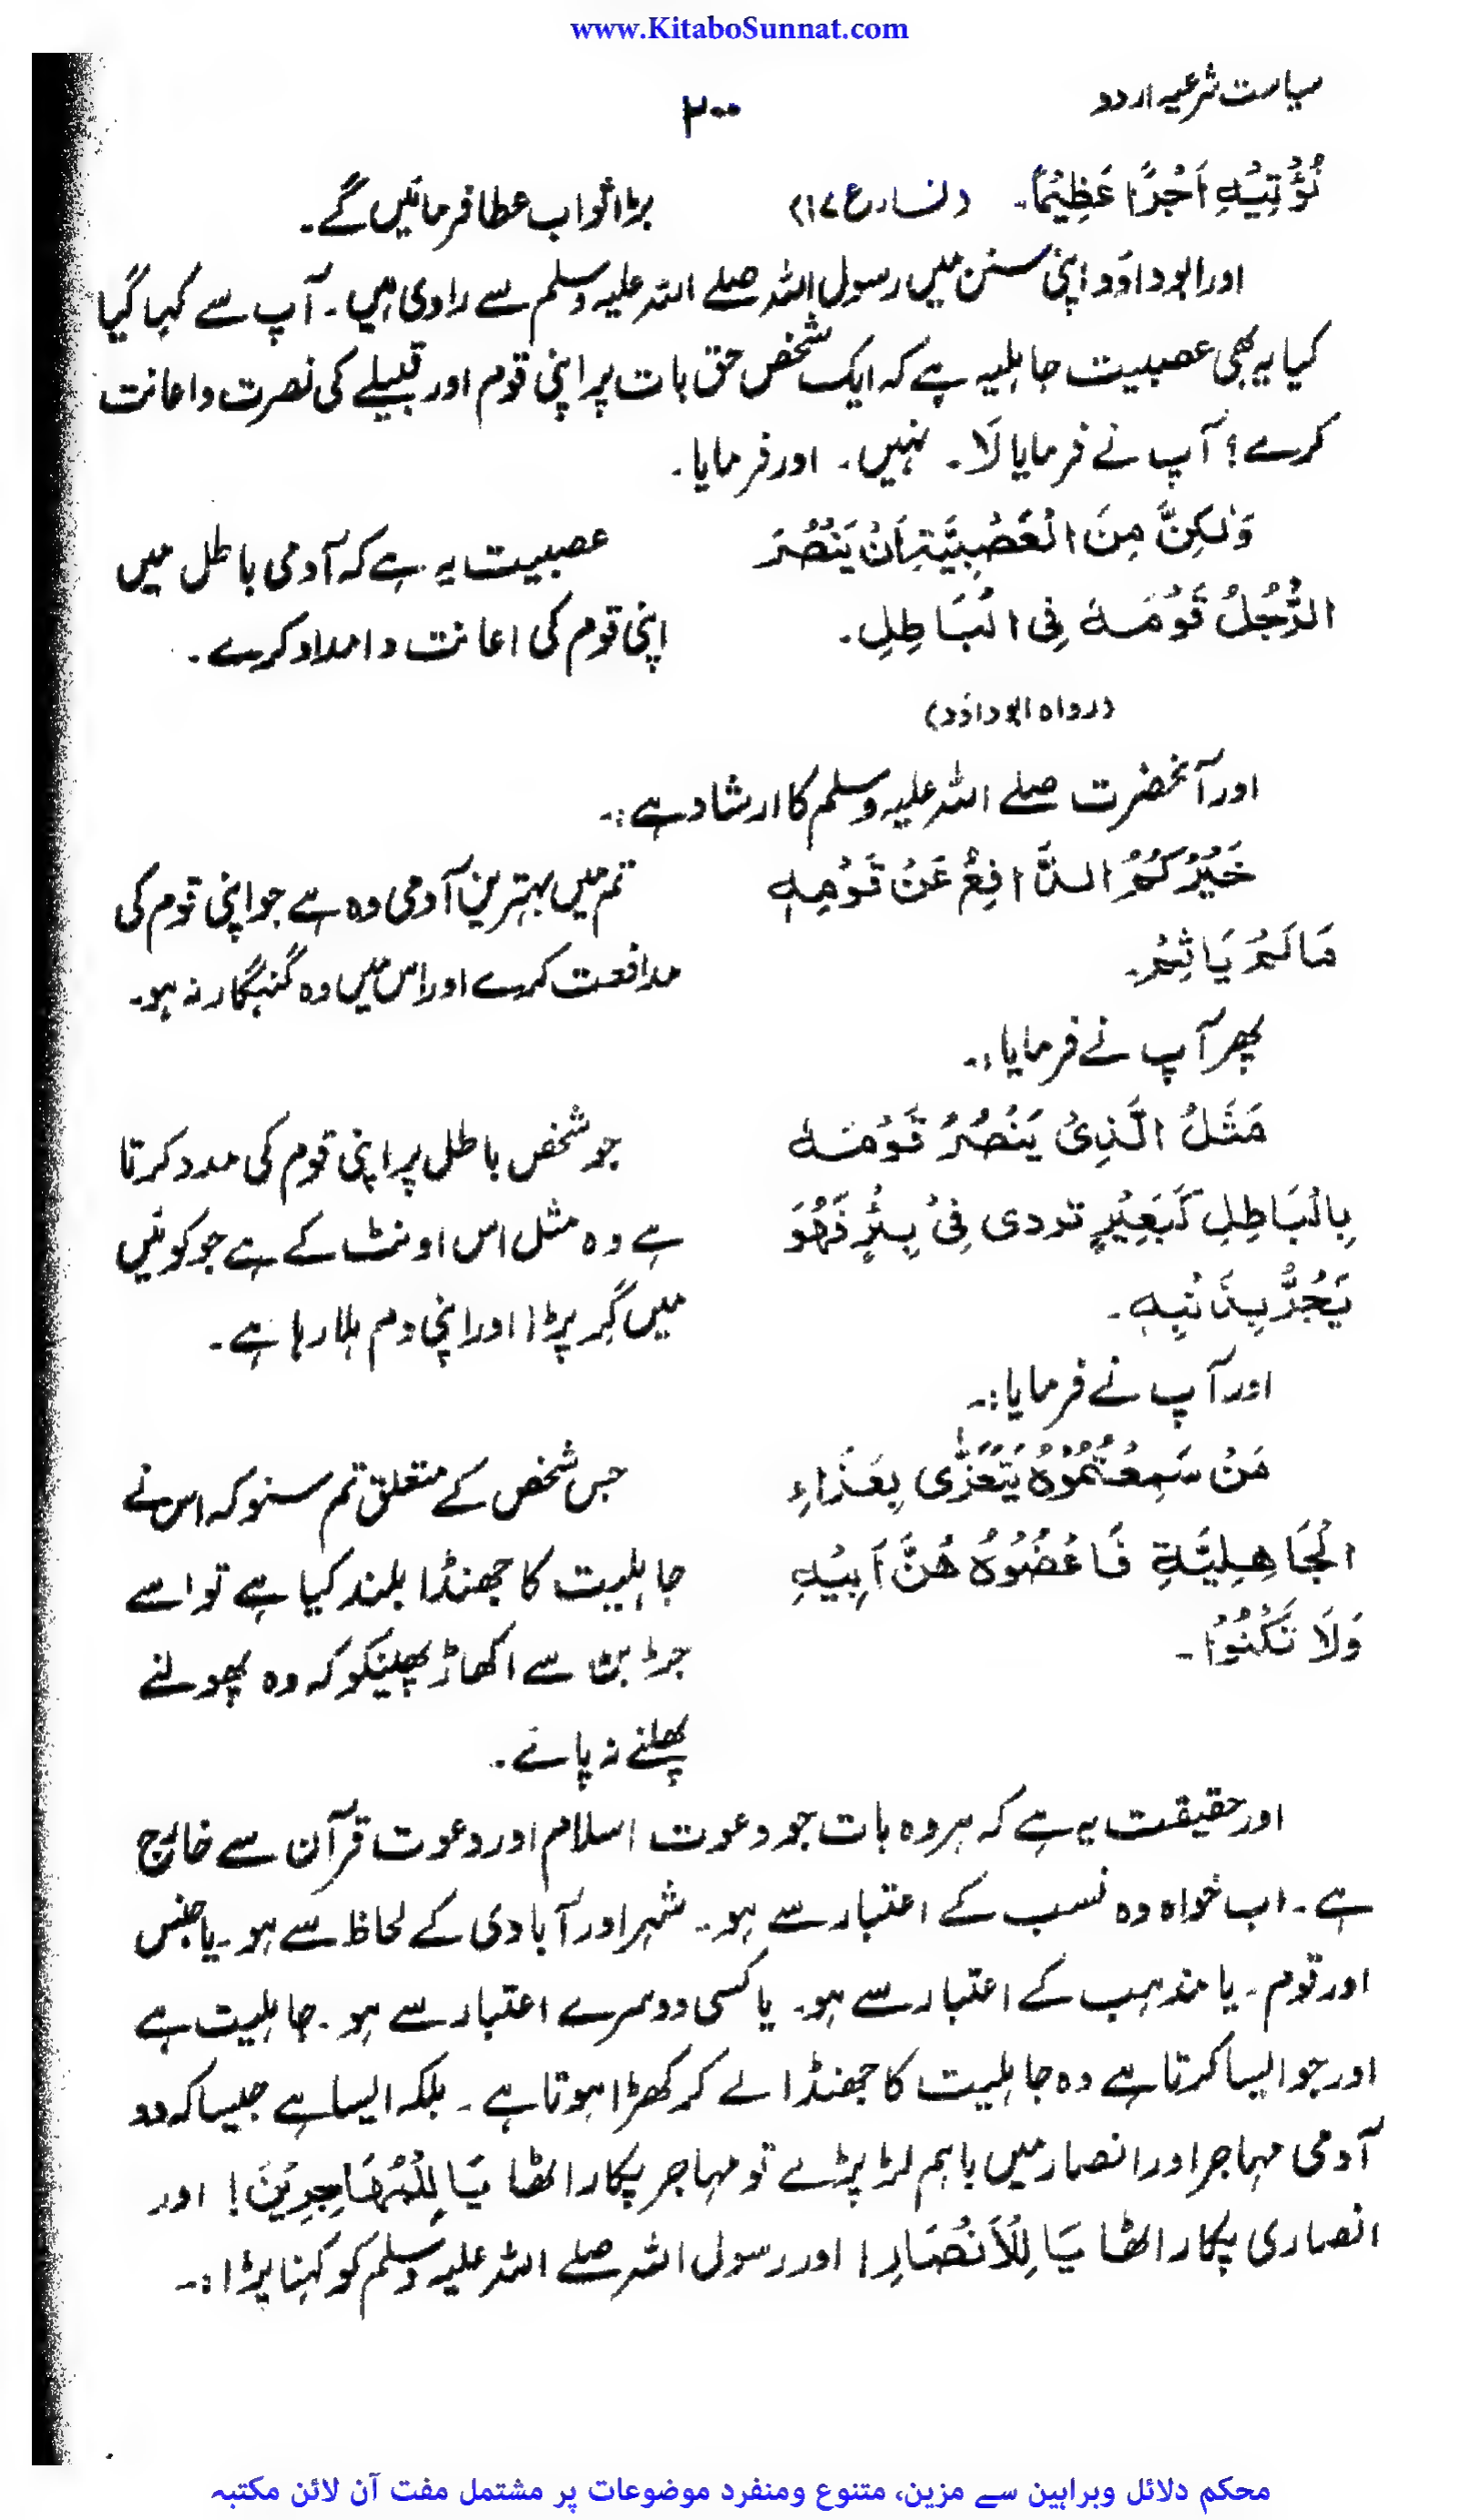 www.KitaboSunnat.com
سیاست شرعیہ اردو
۲۰۰
نُؤْتِیْہِ اَجْرًا عَظِیْمًا۔ (نساء ع ۱۷) بڑا ثواب عطا فرمائیں گے۔
اور ابوداؤد اپنی سنن میں رسول اللہ صلے اللہ علیہ وسلم سے راوی ہیں۔ آپ سے کہا گیا
کیا یہ بھی عصبیت جاہلیہ ہے کہ ایک شخص حق بات پر اپنی قوم اور قبیلے کی نصرت واعانت
کرے؟ آپ نے فرمایا لَا۔ نہیں۔ اور فرمایا۔
وَلٰکِنَّ مِنَ الْعَصَبِیَّۃِ اَنْ یَنْصُرَ عصبیت یہ ہے کہ آدمی باطل میں
الرَّجُلُ قَوْمَہٗ فِی الْبَاطِلِ۔ اپنی قوم کی اعانت وامداد کرے۔
(رواہ ابوداؤد)
اور آنحضرت صلے اللہ علیہ وسلم کا ارشاد ہے:۔
خَیْرُکُمْ الدَّافِعُ عَنْ قَوْمِہٖ تم میں بہترین آدمی وہ ہے جو اپنی قوم کی
مَا لَمْ یَاثِمْ۔ مدافعت کرے اور اس میں وہ گنہگار نہ ہو۔
پھر آپ نے فرمایا:۔
مَثَلُ الَّذِیْ یَنْصُرُ قَوْمَہٗ جو شخص باطل پر اپنی قوم کی مدد کرتا
بِالْبَاطِلِ کَبَعِیْرٍ تردی فِیْ بِئْرٍ فَھُوَ ہے وہ مثل اس اونٹ کے ہے جو کوئیں
یَجُرُّ بِذَنْبِہٖ۔ میں گر پڑا اور اپنی دم ہلا رہا ہے۔
اور آپ نے فرمایا:۔
مَنْ سَمِعْتُمُوْہُ یَتَعَزّٰی بِعَذَاءِ جس شخص کے متعلق تم سنو کہ اس نے
الْجَاھِلِیَّۃِ فَاعْضُوْہُ ھُنَّ اَبِیْہِ جاہلیت کا جھنڈا بلند کیا ہے تو اسے
وَلَا تَکْنُوْا۔ جڑ بن سے اکھاڑ پھینکو کہ وہ پھولنے
پھلنے نہ پائے۔
اور حقیقت یہ ہے کہ ہر وہ بات جو دعوت اسلام اور دعوت قرآن سے خارج
ہے۔ اب خواہ وہ نسب کے اعتبار سے ہو۔ شہر اور آبادی کے لحاظ سے ہو۔ یا جنس
اور قوم۔ یا مذہب کے اعتبار سے ہو۔ یا کسی دوسرے اعتبار سے ہو۔ جاہلیت ہے
اور جو ایسا کرتا ہے وہ جاہلیت کا جھنڈا لے کر کھڑا ہوتا ہے۔ بلکہ ایسا ہے جیسا کہ دو
آدمی مہاجر اور انصار میں باہم لڑ پڑے تو مہاجر پکار اٹھا یَا لِلْمُھَاجِرِیْنَ! اور
انصاری پکار اٹھا یَا لِلْاَنْصَارِ! اور رسول اللہ صلے اللہ علیہ وسلم کو کہنا پڑا:۔
محکم دلائل وبراہین سے مزین، متنوع ومنفرد موضوعات پر مشتمل مفت آن لائن مکتبہ